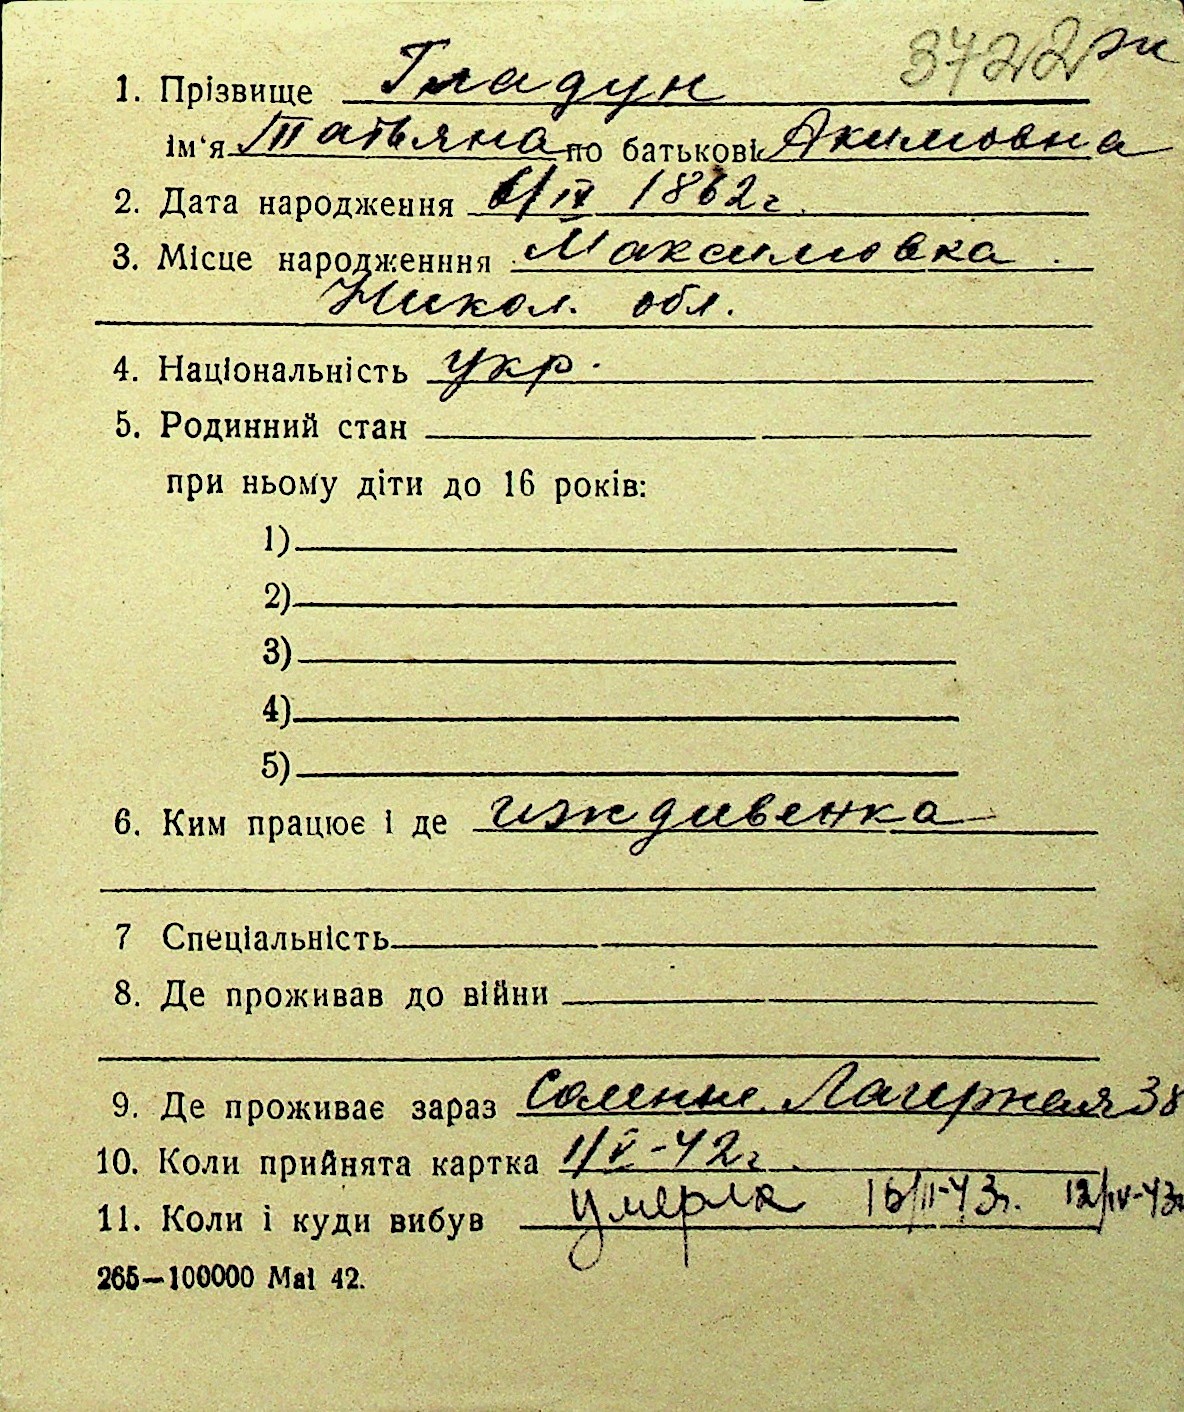 3722 ж
1. Прізвище Гладун
ім'я Татьяна по батькові Акимовна
2. Дата народження 6/IV 1862 г.
3. Місце народженння Максимовка
Никол. обл.
4. Національність укр.
5. Родинний стан
при ньому діти до 16 років:
1)
2)
3)
4)
5)
6. Ким працює і де иждивенка
7 Спеціальність
8. Де проживав до війни
9. Де проживає зараз Лагерная 38
10. Коли прийнята картка 1/V-42 г.
11. Коли і куди вибув умерла 16/II-43г. 12/IV-43г
265—100000 Mai 42.